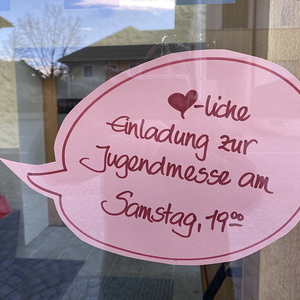 ♥-liche
Einladung zur
Jugendmesse am
Samstag, 19⁰⁰